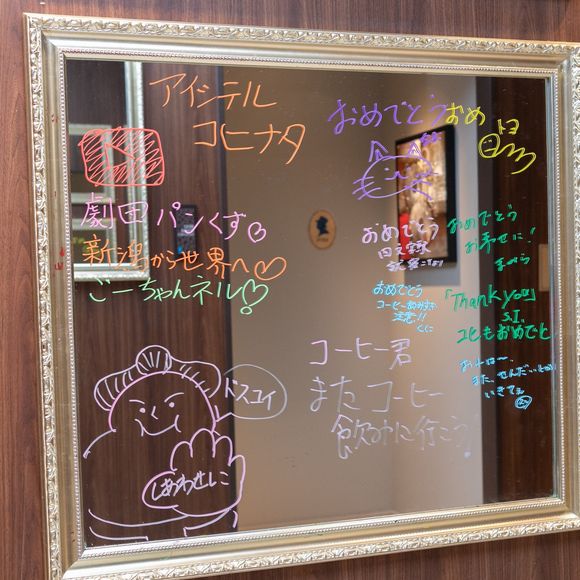 アイシテル
コヒナタ
劇団パンくず
新潟から世界へ
ごーちゃんネル!
ドスコイ
しあわせしこ
おめでとう
おめ
トヨ
おめでとう
おめでとう
お幸せに!
おめでとう
コーヒーのみすぎ
注意!!
くく
「Thank you」
S.I.
コヒもおめでと
コーヒー君
またコーヒー
飲みに行こう!
また、せんだいで
いきてる